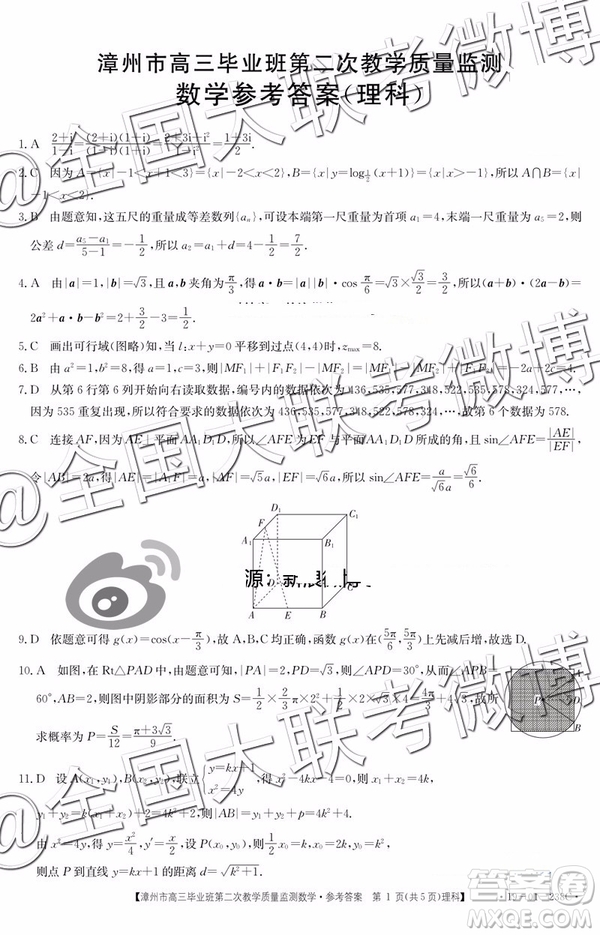 漳州市高三毕业班第二次教学质量监测
数学参考答案(理科)
1. A (2+i)/(1-i)=(2+i)(1+i)/(1-i)(1+i)=(2+3i+i²)/2=(1+3i)/2.
2. C 因为A={x|-1<x+1<3}={x|-2<x<2},B={x|y=log_{1/2}(x+1)}={x|x>-1},所以A∩B={x|
-1<x<2}.
3. B 由题意知,这五尺的重量成等差数列{aₙ},可设本端第一尺重量为首项a₁=4,末端一尺重量为a₅=2,则
公差d=(a₅-a₁)/(5-1)=-1/2,所以a₂=a₁+d=7/2.
4. A 由|a|=1,|b|=√3,且a,b夹角为π/3,得a·b=|a||b|·cos π/6=√3×√3/2=3/2,所以(a+b)·(2a-b)=
2a²+a·b-b²=2+3/2-3=1/2.
5. C 画出可行域(图略)知,当l:x+y=0平移到过点(4,4)时,z_max=8.
6. B 由a²=1,b²=8,得c=3,根据题意,得|MF₁|+|F₁F₂|-|MF₂|=|MF₁|-|MF₂|+|F₁F₂|=-2a+2c=4.
7. D 从第6行第6列开始向右读取数据,编号内的数据依次为436,535,577,348,522,535,578,324,577,…,
因为535重复出现,所以符合要求的数据依次为436,535,577,348,522,578,324,…,故第6个数据为578.
8. C 连接AF,因为AE⊥平面AA₁D₁D,所以∠AFE为EF与平面AA₁D₁D所成的角,且sin∠AFE=|AE|/|EF|,
令|AB|=2a,得|AE|=|A₁F|=a,|AF|=√5a,|EF|=√6a,所以sin∠AFE=a/√6a=√6/6.
D₁
C₁
F
A₁
B₁
D
C
A
E
B
9. D 依题意可得g(x)=cos(x-π/3),故A,B,C均正确,函数g(x)在(5π/6,5π/3)上先减后增,故选D.
10. A 如图,在Rt△PAD中,由题意可知,|PA|=2,PD=√3,则∠APD=30°,从而∠APB=
60°,AB=2,则图中阴影部分的面积S=1/2×π/3×2²+1/2×2×√3×4=4π/3+4√3,故所
求概率为P=S/12=(π+3√3)/9.
P
D
A
B
11. D 设A(x₁,y₁),B(x₂,y₂),联立{y=kx+1
x₁+x₂=4k,
y₁+y₂=k(x₁+x₂)+2=4k²+2,则|AB|=y₁+y₂+2=4k²+4.
由x²=4y,得y=x²/4,y′=x/2,设P(x₀,y₀),则x₀=2k,y₀=k²,
则点P到直线y=kx+1的距离d=√(k²+1).
【漳州市高三毕业班第二次教学质量监测数学·参考答案 第1页(共5页)理科】
@全国大联考微博